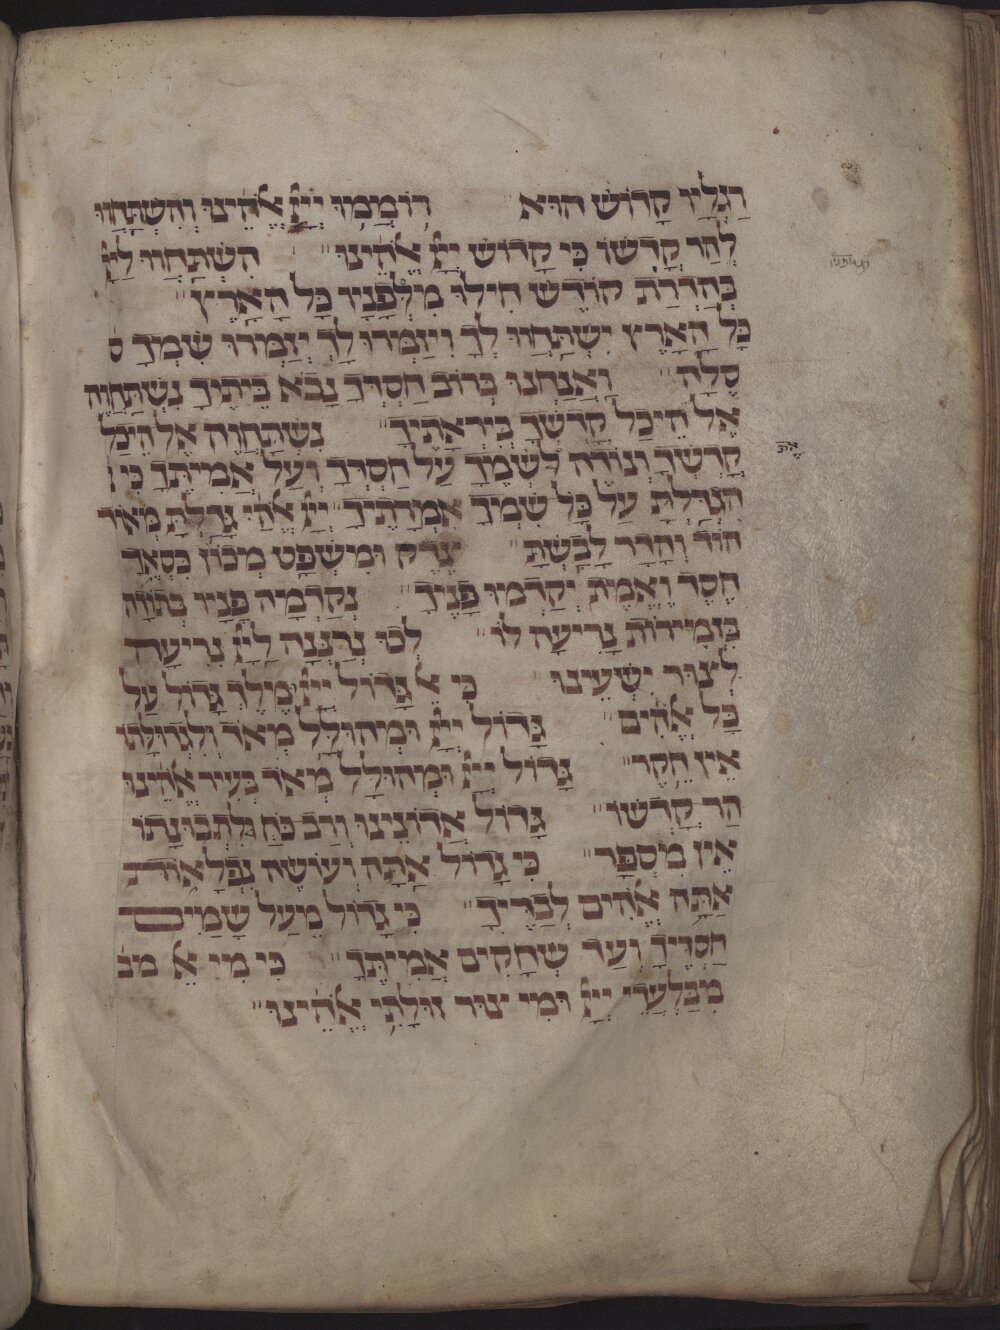 רַגְלָיו קָדוֹשׁ הוּא רוֹמְמוּ יְיָ אֱלֹהֵינוּ וְהִשְׁתַּחֲווּ
לְהַר קָדְשׁוֹ כִּי קָדוֹשׁ יְיָ אֱלֹהֵינוּ הִשְׁתַּחֲווּ לַיְיָ
בְּהַדְרַת קוֹדֶשׁ חִילוּ מִלְּפָנָיו כָּל הָאָרֶץ
כָּל הָאָרֶץ יִשְׁתַּחֲווּ לְךָ וִיזַמְּרוּ לָךְ יְזַמְּרוּ שִׁמְךָ ס
סֶלָה וַאֲנַחְנוּ בְּרוֹב חַסְדְּךָ נָבֹא בֵיתֶיךָ נִשְׁתַּחֲוֶה
אֶל הֵיכַל קָדְשְׁךָ בְּיִרְאָתֶיךָ נִשְׁתַּחֲוֶה אֶל הֵיכַל
קָדְשְׁךָ וְנוֹדֶה לִשְׁמֶךָ עַל חַסְדְּךָ וְעַל אֲמִיתֶּךָ כִּי
הִגְדַּלְתָּ עַל כָּל שִׁמְךָ אִמְרָתֶיךָ יְיָ אֱלֹהַי גָּדַלְתָּ מְּאֹד
הוֹד וְהָדָר לָבָשְׁתָּ צֶדֶק וּמִשְׁפָּט מְכוֹן כִּסְאֶךָ
חֶסֶד וֶאֱמֶת יְקַדְּמוּ פָנֶיךָ נְקַדְּמָה פָנָיו בְּתוֹדָה
בִּזְמִירוֹת נָרִיעָה לוֹ לְכוּ נְרַנְּנָה לַיְיָ נָרִיעָה
לְצוּר יִשְׁעֵינוּ כִּי אֵ גָּדוֹל יְיָ וּמֶלֶךְ גָּדוֹל עַל
כָּל אֱלֹהִים גָּדוֹל יְיָ וּמְהוּלָּל מְאֹד וְלִגְדוּלָּתוֹ
אֵין חֵקֶר גָּדוֹל יְיָ וּמְהוּלָּל מְאֹד בְּעִיר אֱלֹהֵינוּ
הַר קָדְשׁוֹ גָּדוֹל אֲדוֹנֵינוּ וְרַב כֹּחַ לִתְבוּנָתוֹ
אֵין מִסְפָּר כִּי גָדוֹל אַתָּה וְעוֹשֶׂה נִפְלָאוֹת
אַתָּה אֱלֹהִים לְבַדֶּיךָ כִּי גָדוֹל מֵעַל שָׁמַיִם
חַסְדֶּיךָ וְעַד שְׁחָקִים אֲמִיתֶּךָ כִּי מִי אֵ מב
מִבַּלְעֲדֵי יְיָ וּמִי צוּר זוּלָתִי אֱלֹהֵינוּ